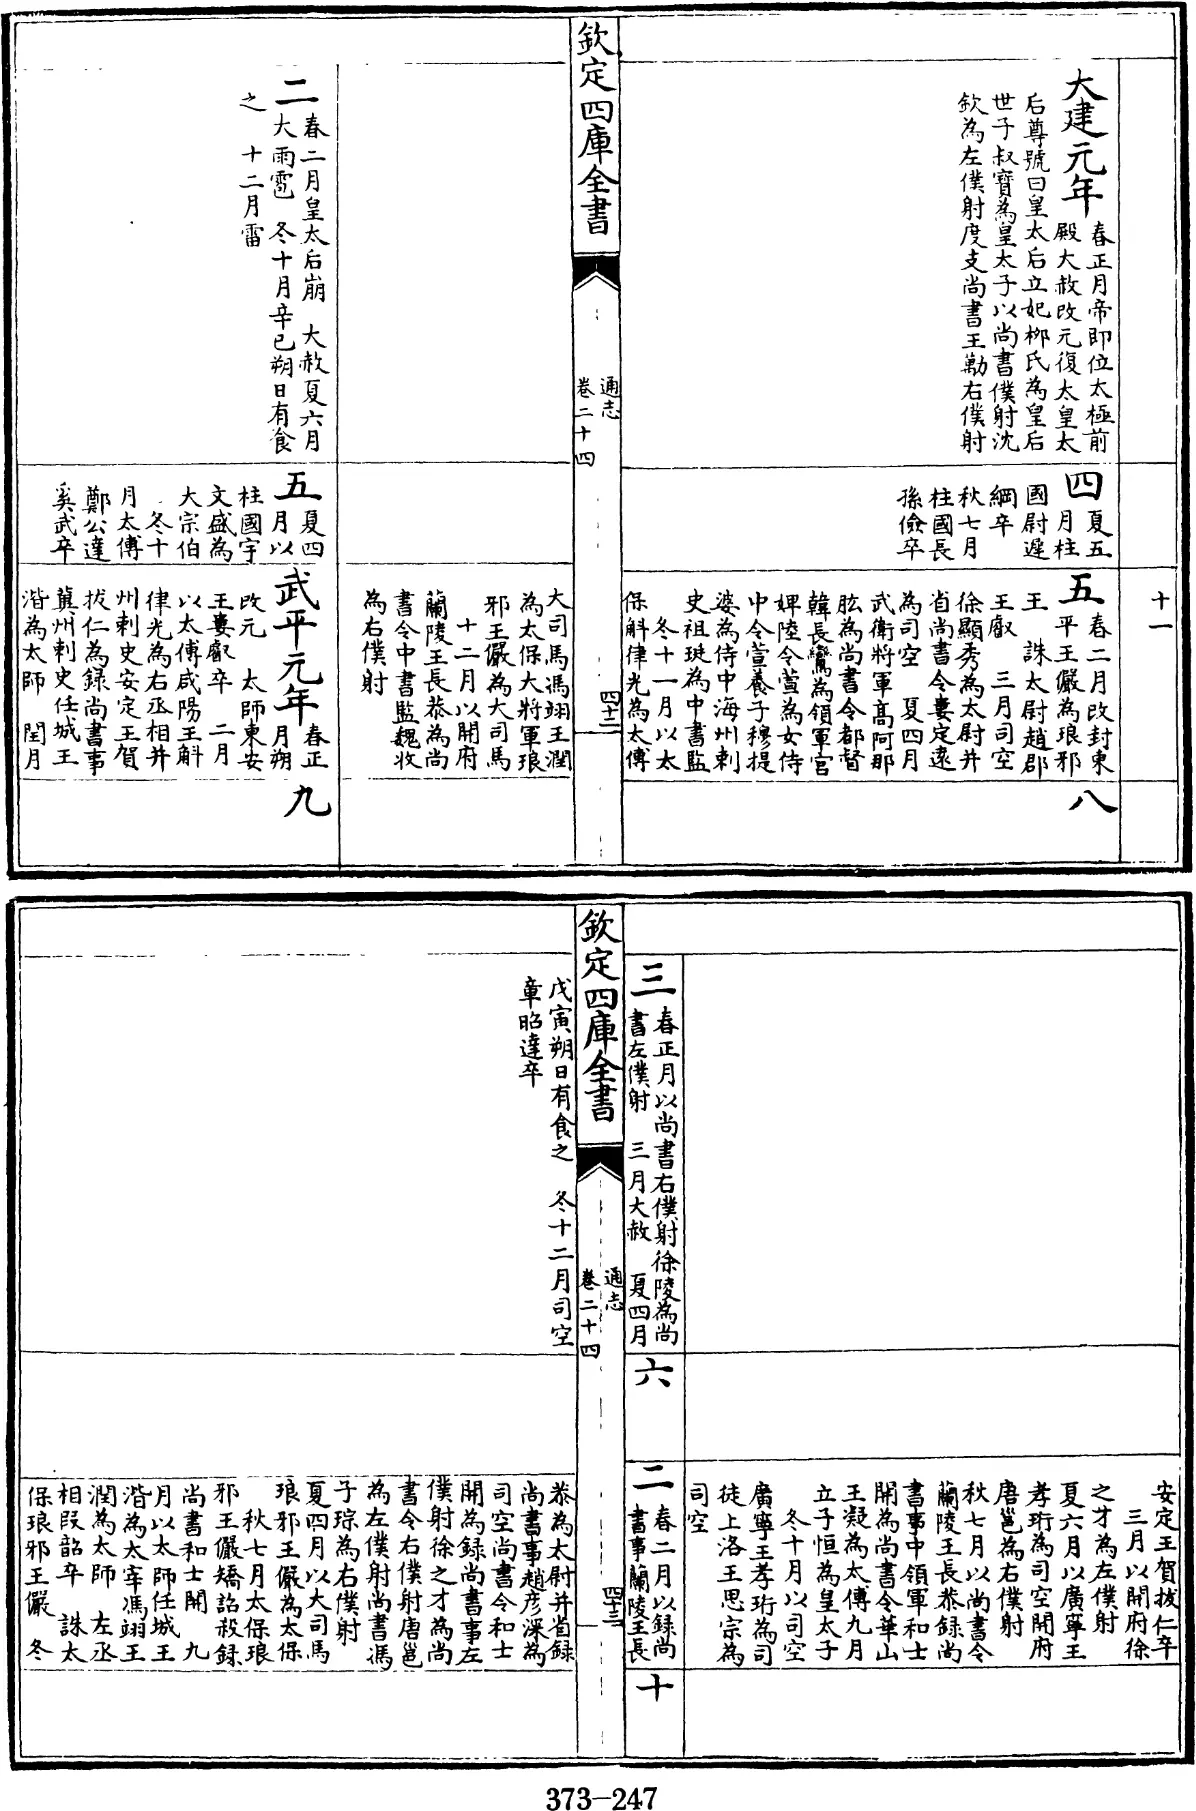 十一
大建元年
春正月帝即位太極前
殿大赦改元復太皇太
后尊號曰皇太后立妃栁氏為皇后
世子叔寶為皇太子以尚書僕射沈
欽為左僕射度支尚書王勱右僕射
四
夏五
月柱
國尉遲
綱卒
秋七月
柱國長
孫儉卒
五
春二月改封東
平王儼為琅邪
王 誅太尉趙郡
王叡 三月司空
徐顯秀為太尉并
省尚書令婁定遠
為司空 夏四月
武衛將軍髙阿那
肱為尚書令都督
韓長鸞為領軍宫
婢陸令萱為女侍
中令萱養子穆提
婆為侍中海州刺
史祖珽為中書監
冬十一月以太
保斛律光為太傅
八
欽定四庫全書
通志
卷二十四
四十二
大司馬馮翊王潤
為太保大將軍琅
邪王儼為大司馬
十二月以開府
蘭陵王長恭為尚
書令中書監魏收
為右僕射
二
春二月皇太后崩 大赦夏六月
大雨雹 冬十月辛已朔日有食
之 十二月雷
五
夏四
月以
柱國宇
文盛為
大宗伯
冬十
月太傅
鄭公達
奚武卒
武平元年
春正
月朔
改元 太師東安
王婁叡卒 二月
以太傅咸陽王斛
律光為右丞相并
州刺史安定王賀
拔仁為録尚書事
冀州刺史任城王
湝為太師 閏月
九
安定王賀拔仁卒
三月以開府徐
之才為左僕射
夏六月以廣寧王
孝珩為司空開府
唐邕為右僕射
秋七月以尚書令
蘭陵王長恭録尚
書事中領軍和士
開為尚書令華山
王凝為太傅九月
立子恒為皇太子
冬十月以司空
廣寧王孝珩為司
徒上洛王思宗為
司空
三
春正月以尚書右僕射徐陵為尚
書左僕射 三月大赦 夏四月
六
二
春二月以録尚
書事蘭陵王長
十
欽定四庫全書
通志
卷二十四
四十三
戊寅朔日有食之 冬十二月司空
章昭達卒
恭為太尉并省録
尚書事趙彦深為
司空尚書令和士
開為録尚書事左
僕射徐之才為尚
書令右僕射唐邕
為左僕射尚書馮
子琮為右僕射
夏四月以大司馬
琅邪王儼為太保
秋七月太保琅
邪王儼矯詔殺録
尚書和士開 九
月以太師任城王
湝為太宰馮翊王
潤為太師 左丞
相叚韶卒 誅太
保琅邪王儼 冬
373-247